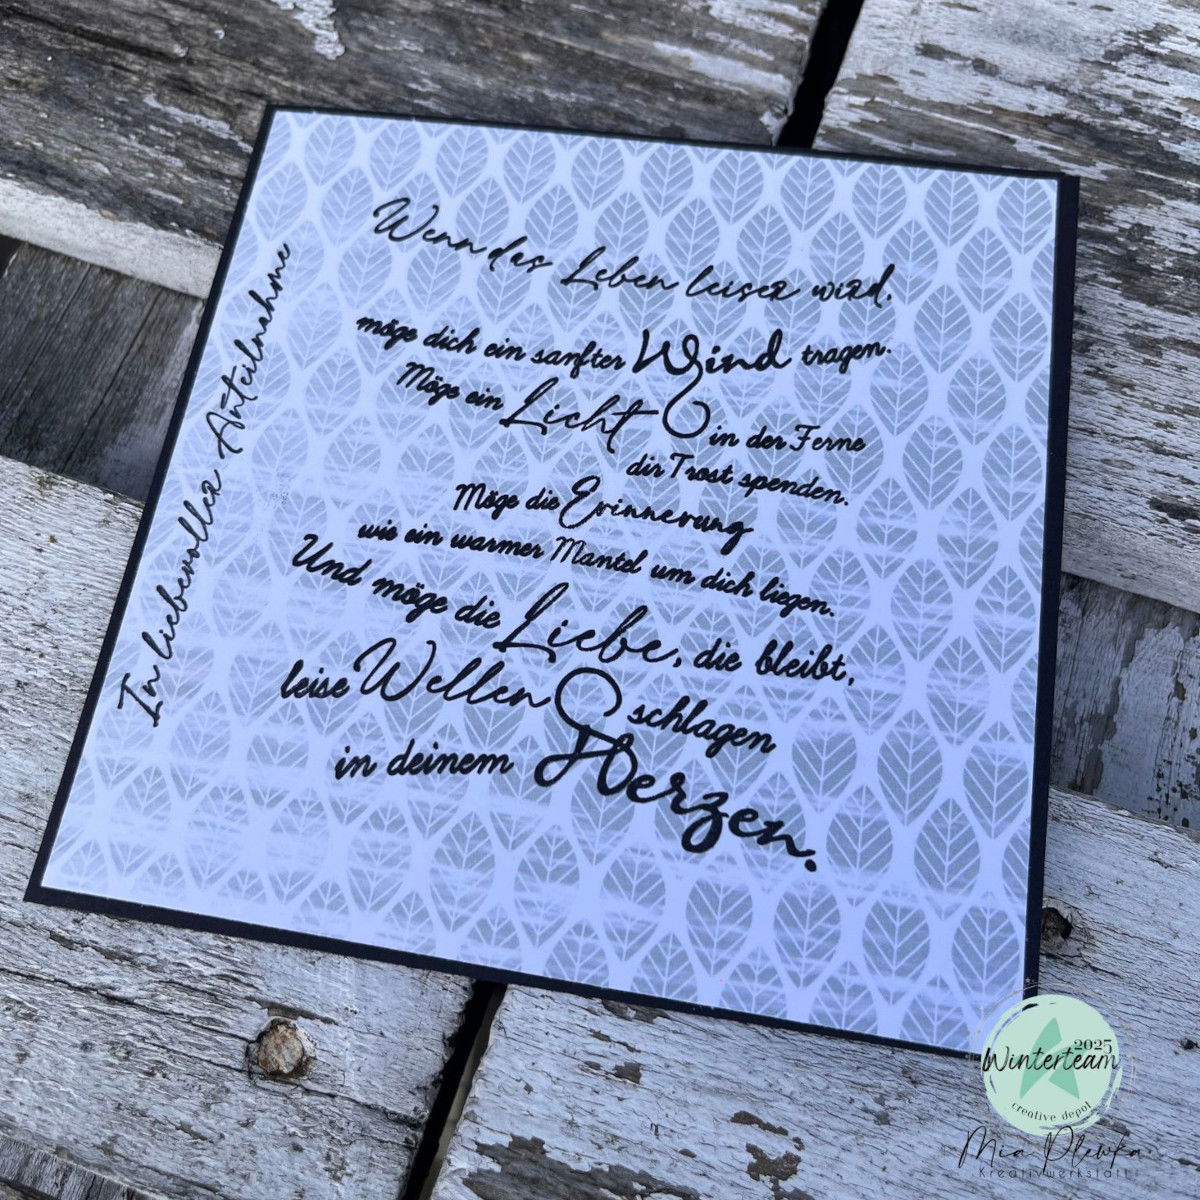 Wenn das Leben leiser wird,
möge dich ein sanfter Wind tragen.
Möge ein Licht in der Ferne
dir Trost spenden.
Möge die Erinnerung
wie ein warmer Mantel um dich liegen.
Und möge die Liebe, die bleibt,
leise Wellen schlagen
in deinem Herzen.
In liebevoller Anteilnahme
2025
Winterteam
creative depot
Mia Plewka
Kreativwerkstatt